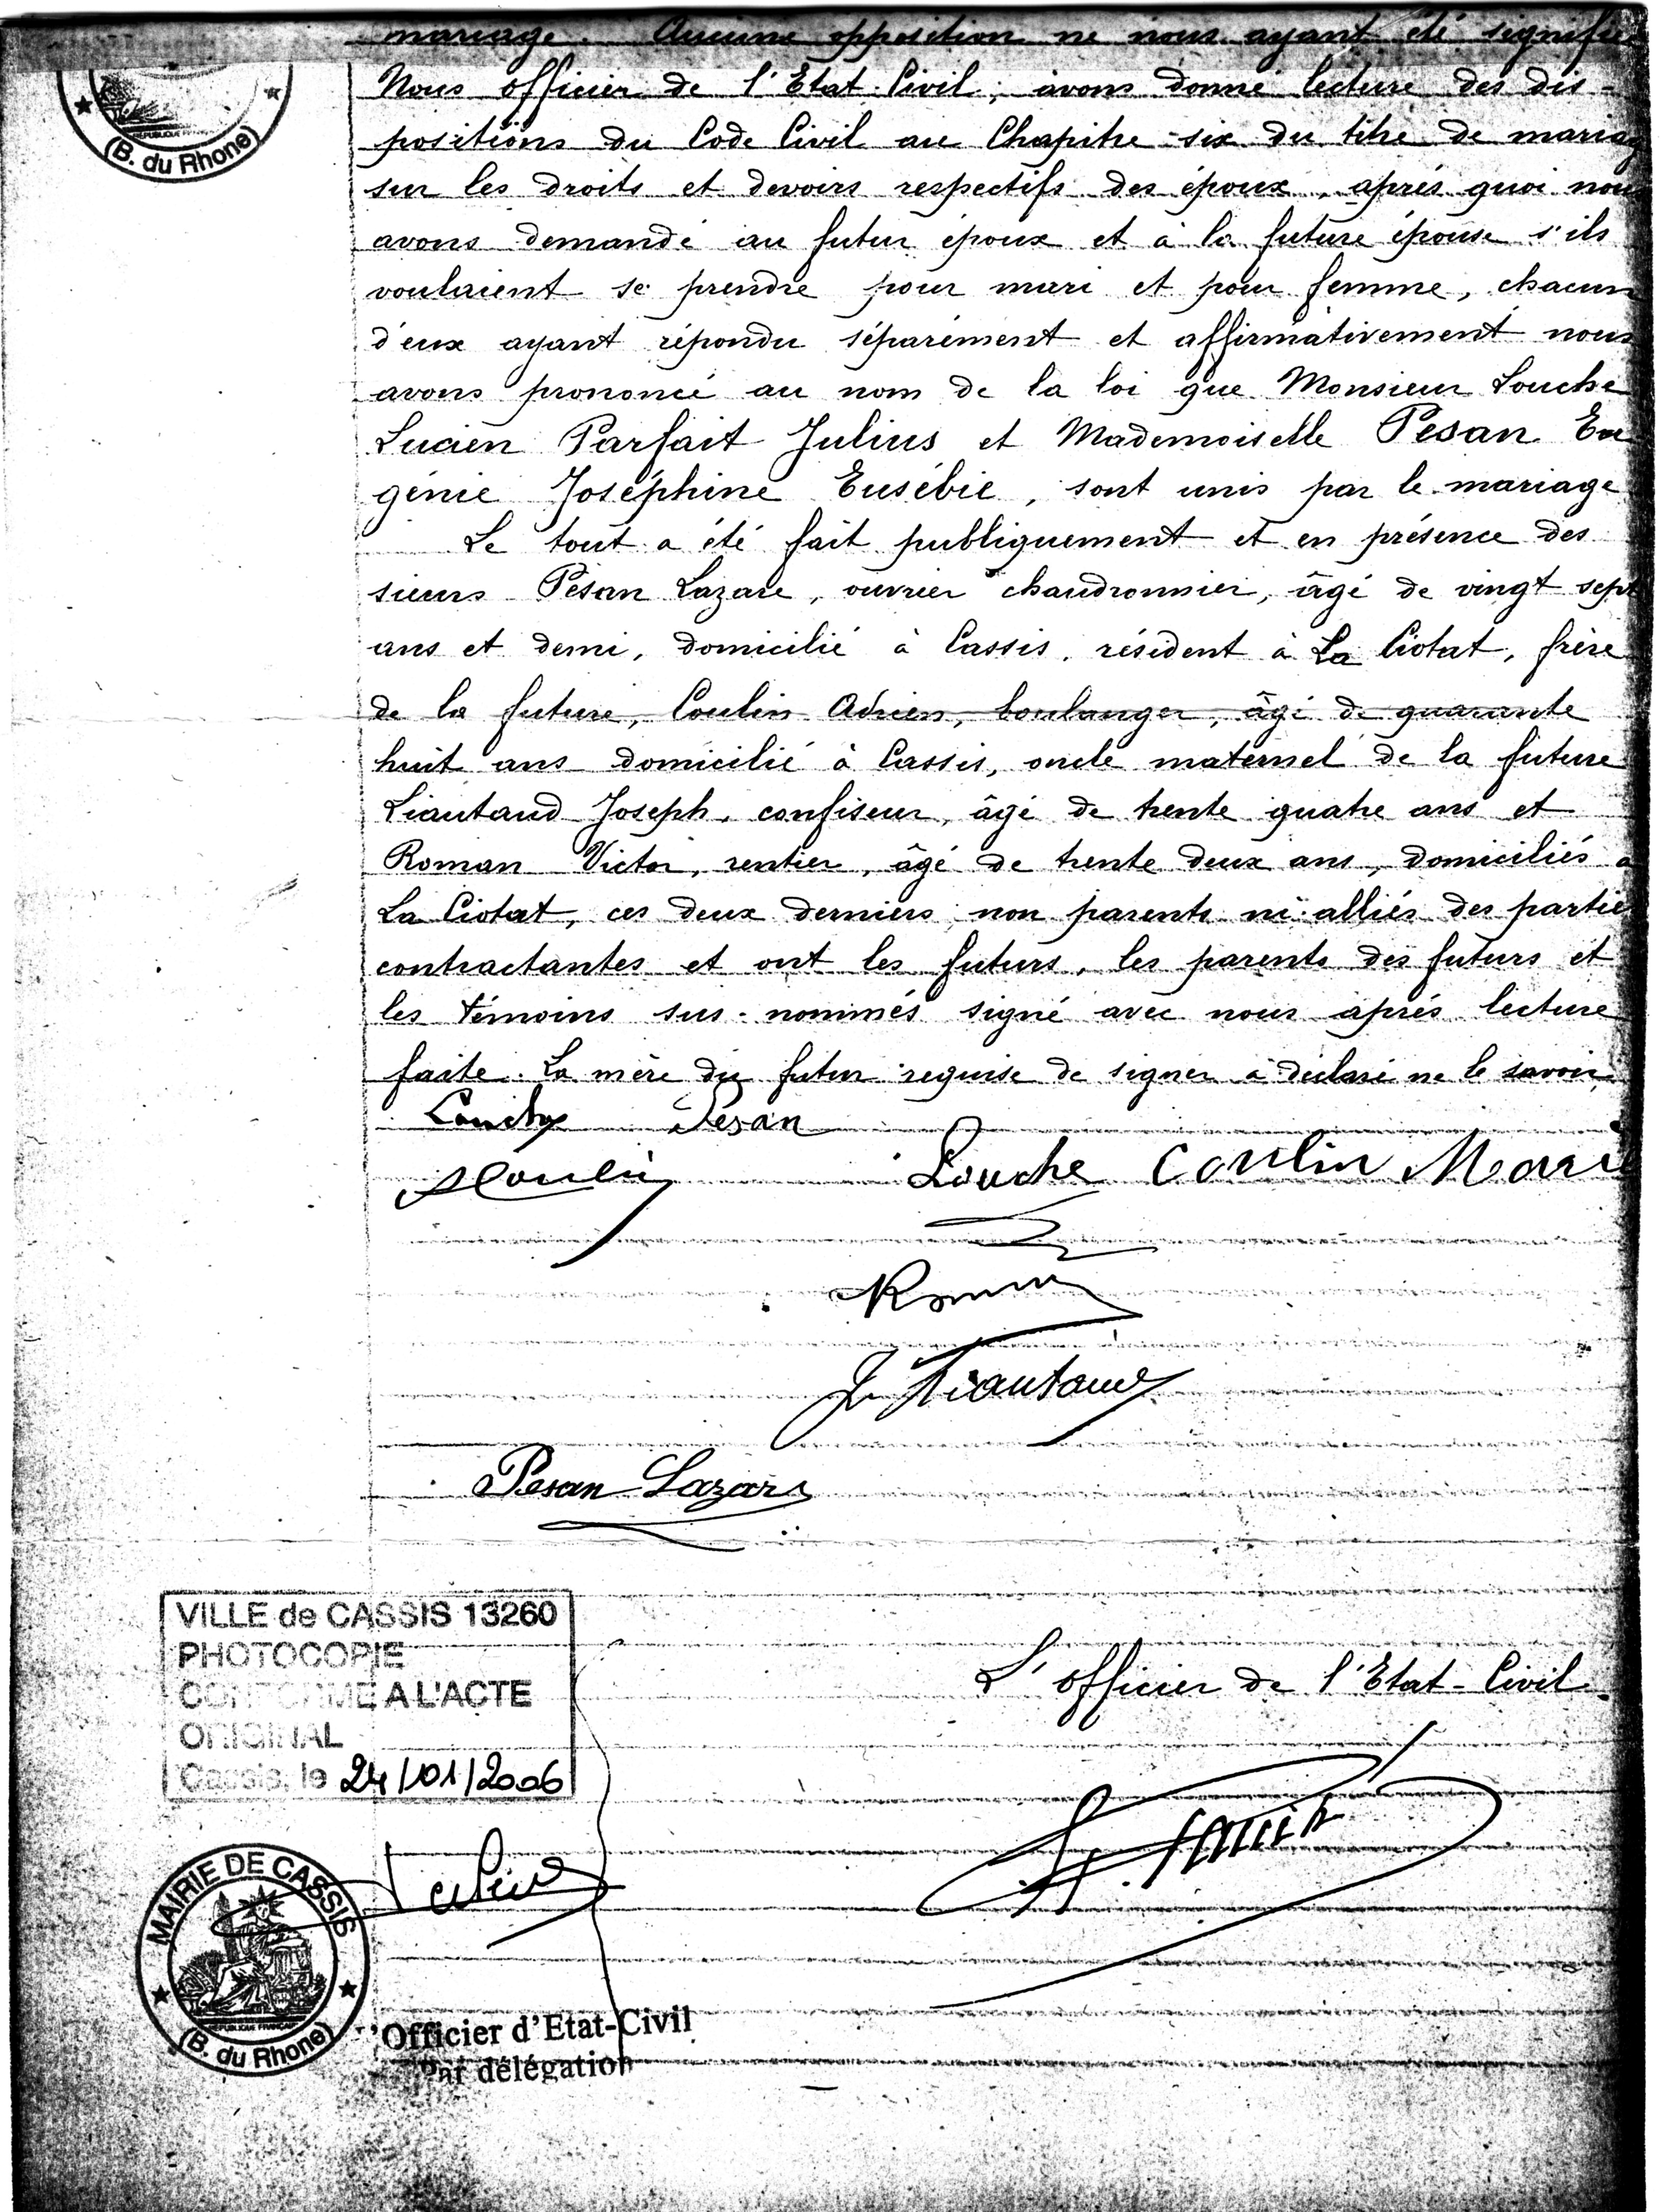 mariage. Aucune opposition ne nous ayant été signifié
Nous officier de l'Etat Civil, avons donné lecture des dis-
(B. du Rhone)
positions du Code Civil au Chapitre six du titre de mariag
sur les droits et devoirs respectifs des époux, après quoi nous
avons demandé au futur époux et à la future épouse s'ils
voulaient se prendre pour mari et pour femme, chacun
d'eux ayant répondu séparément et affirmativement nous
avons prononcé au nom de la loi que Monsieur Louche
Lucien Parfait Julius et Mademoiselle Pésan Eu
génie Joséphine Eusébie, sont unis par le mariage
Le tout a été fait publiquement et en présence des
sieurs Pésan Lazare, ouvrier chaudronnier, âgé de vingt sept
ans et demi, domicilié à Cassis, résident à La Ciotat, frère
de la future, Coulin Adrien, boulanger, âgé de quarante
huit ans domicilié à Cassis, oncle maternel de la future
Liautaud Joseph, confiseur, âgé de trente quatre ans et
Roman Victor, rentier, âgé de trente deux ans, domiciliés à
La Ciotat, ces deux derniers non parents ni alliés des partie
contractantes et ont les futurs, les parents des futurs et
les témoins sus-nommés signé avec nous après lecture
faite. La mère du futur requise de signer a déclaré ne le savoir.
Louche Pésan
ACoulin Louche Coulin Marie
Roman
J. Liautaud
Pesan Lazare
VILLE de CASSIS 13260
PHOTOCOPIE
CONFORME A L'ACTE
ORIGINAL
Cassis, le 24/01/2006
L'officier de l'Etat-Civil.
MAIRIE DE CASSIS
(B. du Rhone)
REPUBLIQUE FRANÇAISE
Officier d'Etat-Civil
Par délégation